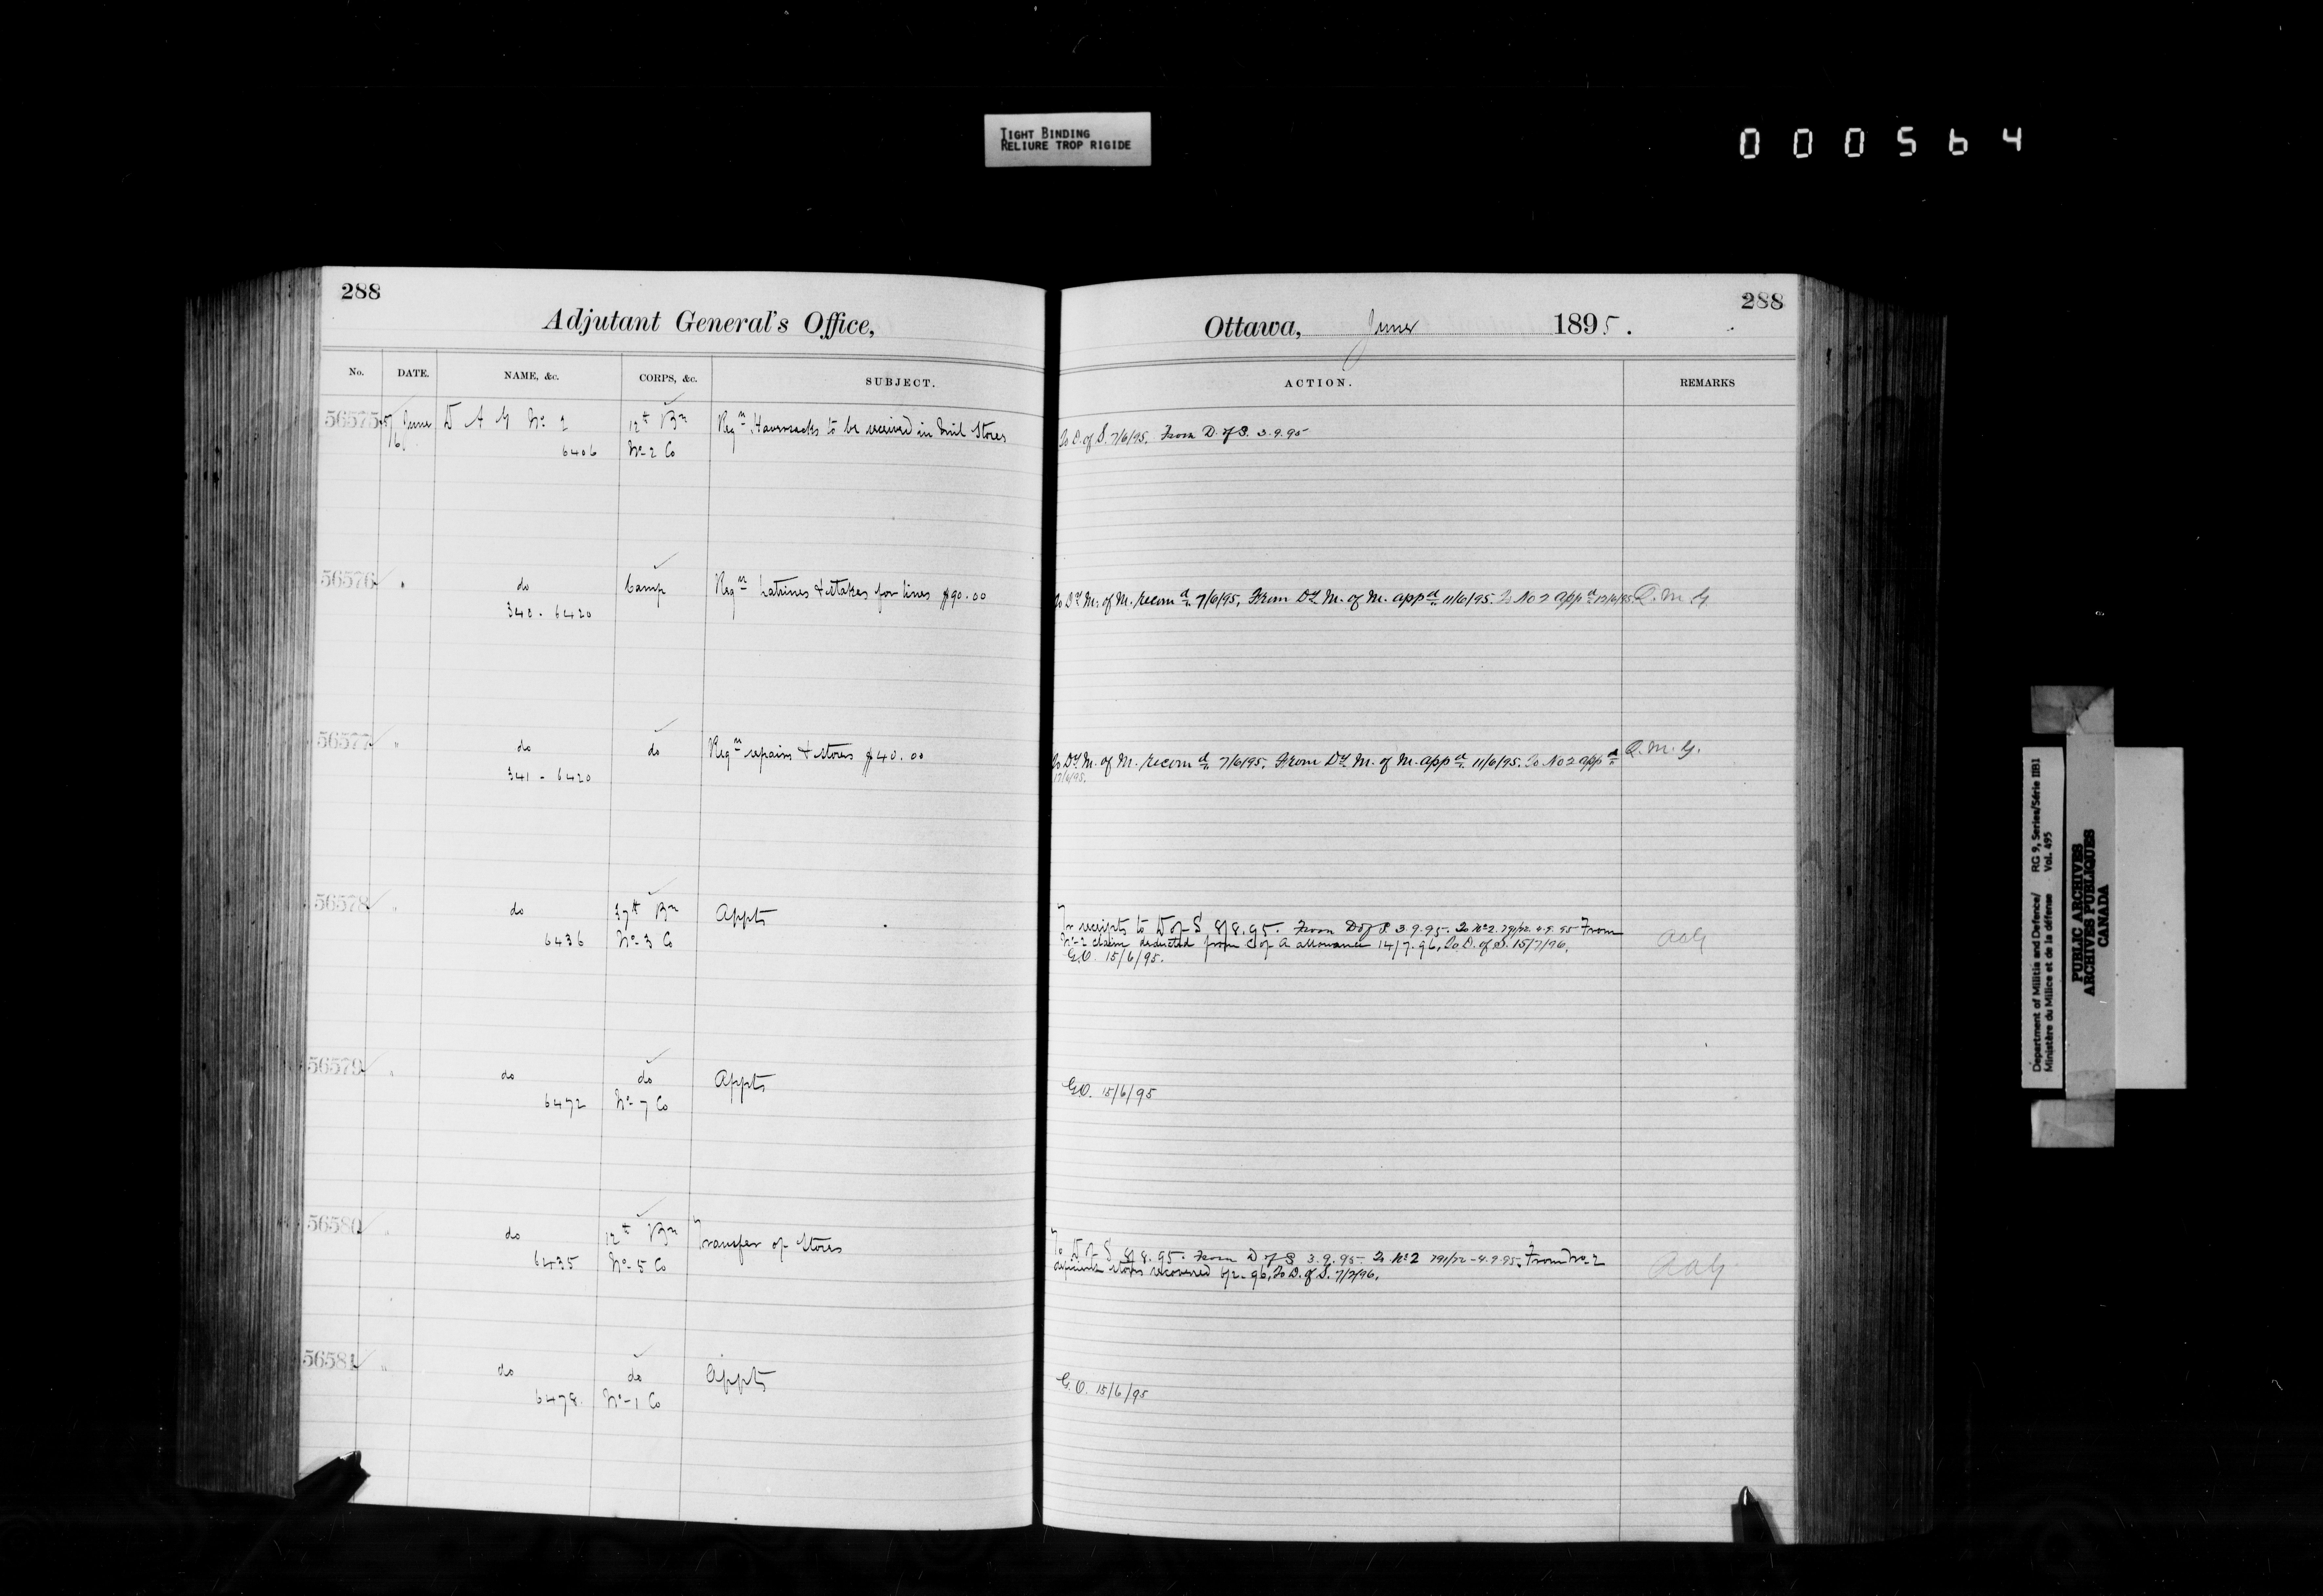 TIGHT BINDING
RELIURE TROP RIGIDE
000564
288
Adjutant General's Office,
No. DATE. NAME, &c. CORPS, &c. SUBJECT.
56575 5/6 June D A G No 2 12th Bn Reqn Haversacks to be received in Mil Stores
6406 No-2 Co
56576 " do Camp Reqn Latrines & stakes for lines $90.00
340 - 6420
56577 " do do Reqn repairs & stores $40.00
341 - 6420
56578 " do 37th Bn Appts
6436 No-3 Co
56579 " do do Appts
6472 No-7 Co
56580 " do 12th Bn Transfer of Stores
6435 No-5 Co
56581 " do do Appts
6478. No-1 Co
288
Ottawa, June 1895.
ACTION. REMARKS
To D. of S. 7/6/95. From D. of S. 3.9.95
To DY M. of M. recomd. 7/6/95. From DY M. of M. appd. 11/6/95. To No 2 appd 12/6/95. Q.M.G.
To DY M. of M. recomd. 7/6/95. From DY M. of M. appd. 11/6/95. To No 2 appd Q.M.G.
12/6/95.
Tr receipts to D of S 8/8.95. From D of S 3.9.95. To No 2. 791/72. 4.9.95 From
No-2 claim deducted from C of A allowance 14/7.96, To D. of S. 15/7/96. AAG
G.O. 15/6/95.
G.O. 15/6/95
To D of S 8/8.95. From D of S 3.9.95. To No 2 791/72 - 4.9.95. From No-2
deficient stores recovered 6/2-96, To D. of S. 7/2/96. AAG
G.O. 15/6/95
Department of Militia and Defence/ RG 9, Series/Série IIB1
Ministère du Milice et de la défense Vol. 495
PUBLIC ARCHIVES
ARCHIVES PUBLIQUES
CANADA